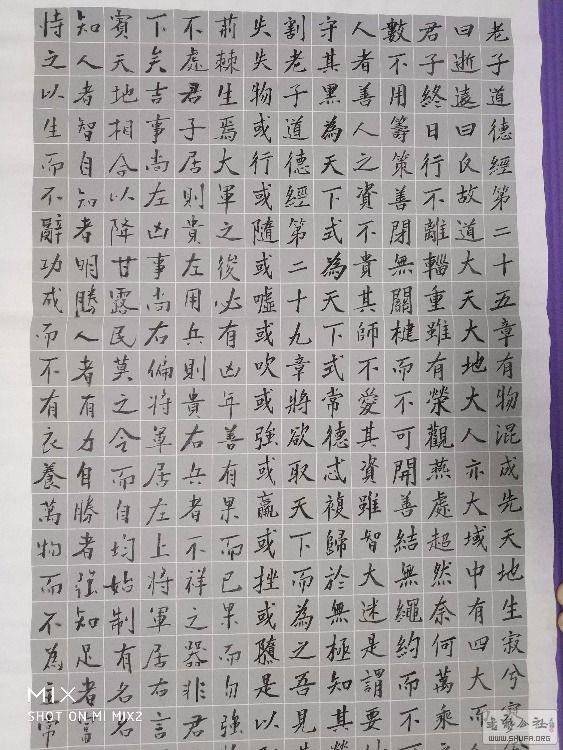 老子道德經第二十五章有物混成先天地生寂兮寥
曰逝遠曰反故道大天大地大人亦大域中有四大而
君子終日行不離輜重雖有榮觀燕處超然奈何萬乘
數不用籌策善閉無關楗而不可開善結無繩約而不
人者善人之資不貴其師不愛其資雖智大迷是謂要
守其黑為天下式為天下式常德忒複歸於無極知其
割老子道德經第二十九章將欲取天下而為之吾見
失失物或行或隨或噓或吹或強或羸或挫或隳是以
荊棘生焉大軍之後必有凶年善有果而已果而勿強
不處君子居則貴左用兵則貴右兵者不祥之器非君
下矣吉事尚左凶事尚右偏將軍居左上將軍居右言
賓天地相合以降甘露民莫之令而自均始制有名名
知人者智自知者明勝人者有力自勝者強知足者富
恃之以生而不辭功成而不有衣養萬物而不為主常
MIX
SHOT ON MI MIX2
WWW.SHUFA.ORG